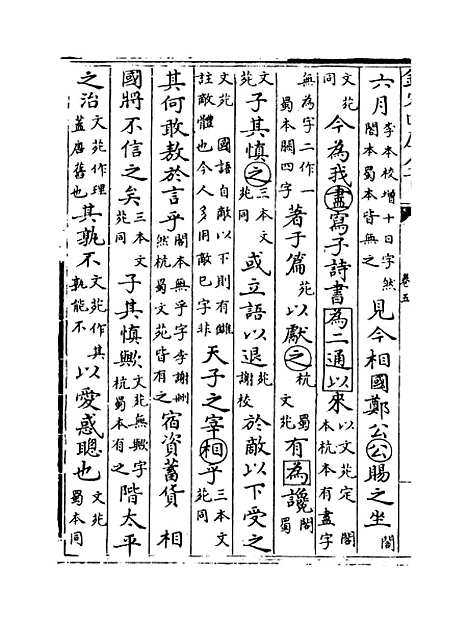 卷五
六月李本校增十日字然閣本蜀本皆無之見今相國鄭公公賜之坐閣
文苑同今為我盡寫子詩書為二通以來以文苑定閣本杭本有盡字
無為字二作一蜀本闕四字著于篇苑以獻之杭蜀文苑有為讒閣蜀
文苑子其慎之三本文苑同或立語以退苑謝校於敵以下受之
文苑國語自敵以下則有讎註敵體也今人多用敵已字非天子之宰相乎三本文苑同
其何敢敖於言乎閣本無乎字李謝刪然杭蜀文苑皆有之宿資蓄貨相
國將不信之矣三本文苑同子其慎歟文苑無歟字杭蜀本有之階太平
之治文苑作理蓋唐舊也其孰不文苑作其孰能不以愛惑聰也文苑蜀本同